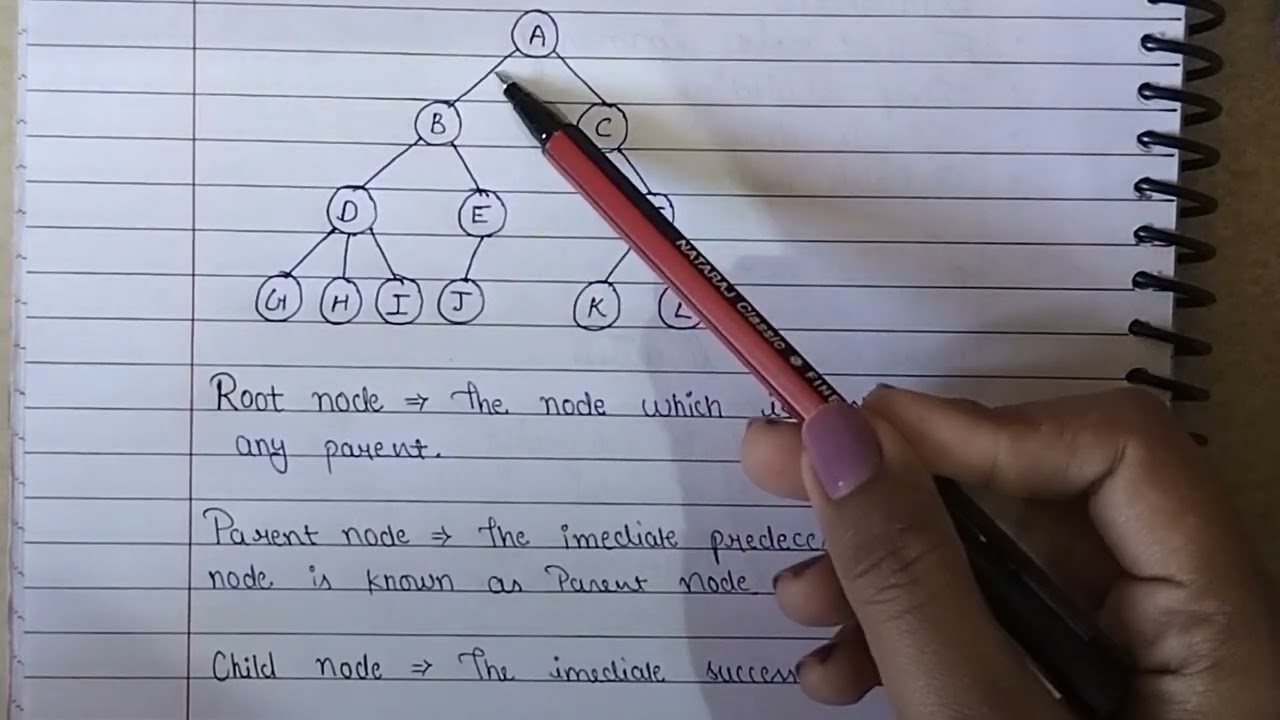 A
B C
D E
G H I J K L
NATARAJ Classic FINE
Root node ⇒ The node which is
any parent.
Parent node ⇒ The imediate
node is known as Parent node
Child node ⇒ The imediate